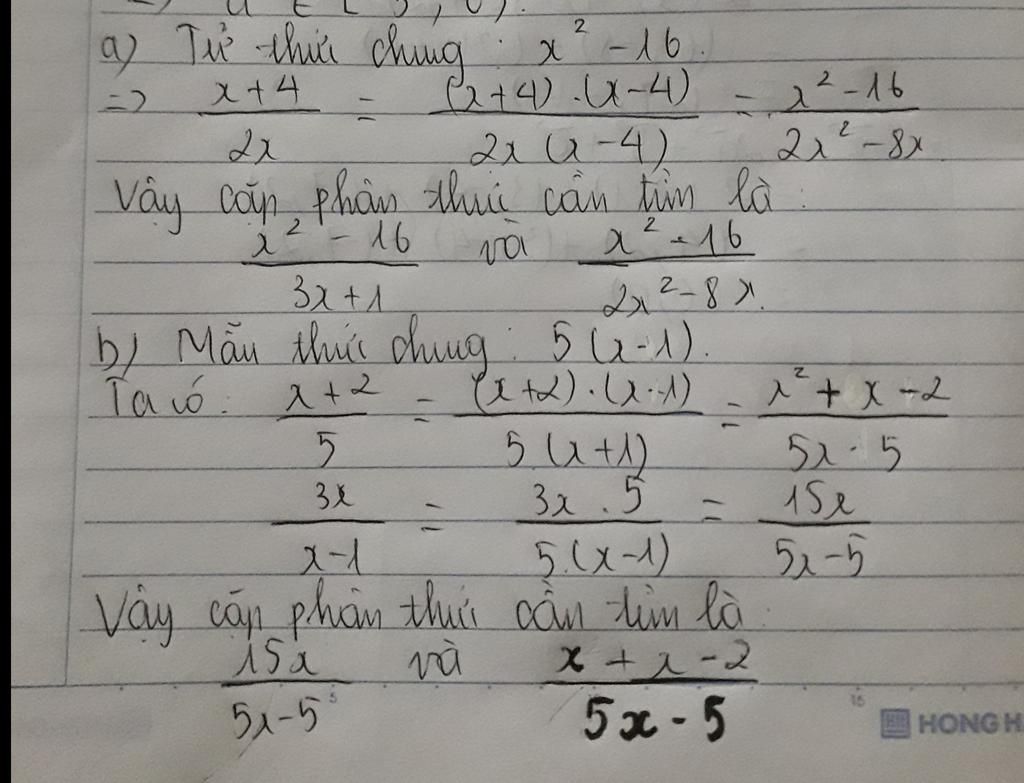 a) Tử thức chung: x² - 16.
=> (x+4)/(2x) = ((x+4).(x-4))/(2x(x-4)) = (x²-16)/(2x²-8x)
Vậy cặp phân thức cần tìm là:
(x²-16)/(3x+1) và (x²-16)/(2x²-8x).
b) Mẫu thức chung: 5(x-1).
Ta có: (x+2)/5 = ((x+2).(x-1))/(5(x+1)) = (x²+x-2)/(5x-5)
(3x)/(x-1) = (3x.5)/(5.(x-1)) = (15x)/(5x-5)
Vậy cặp phân thức cần tìm là
(15x)/(5x-5) và (x+x-2)/(5x-5)
5 15 HONG H